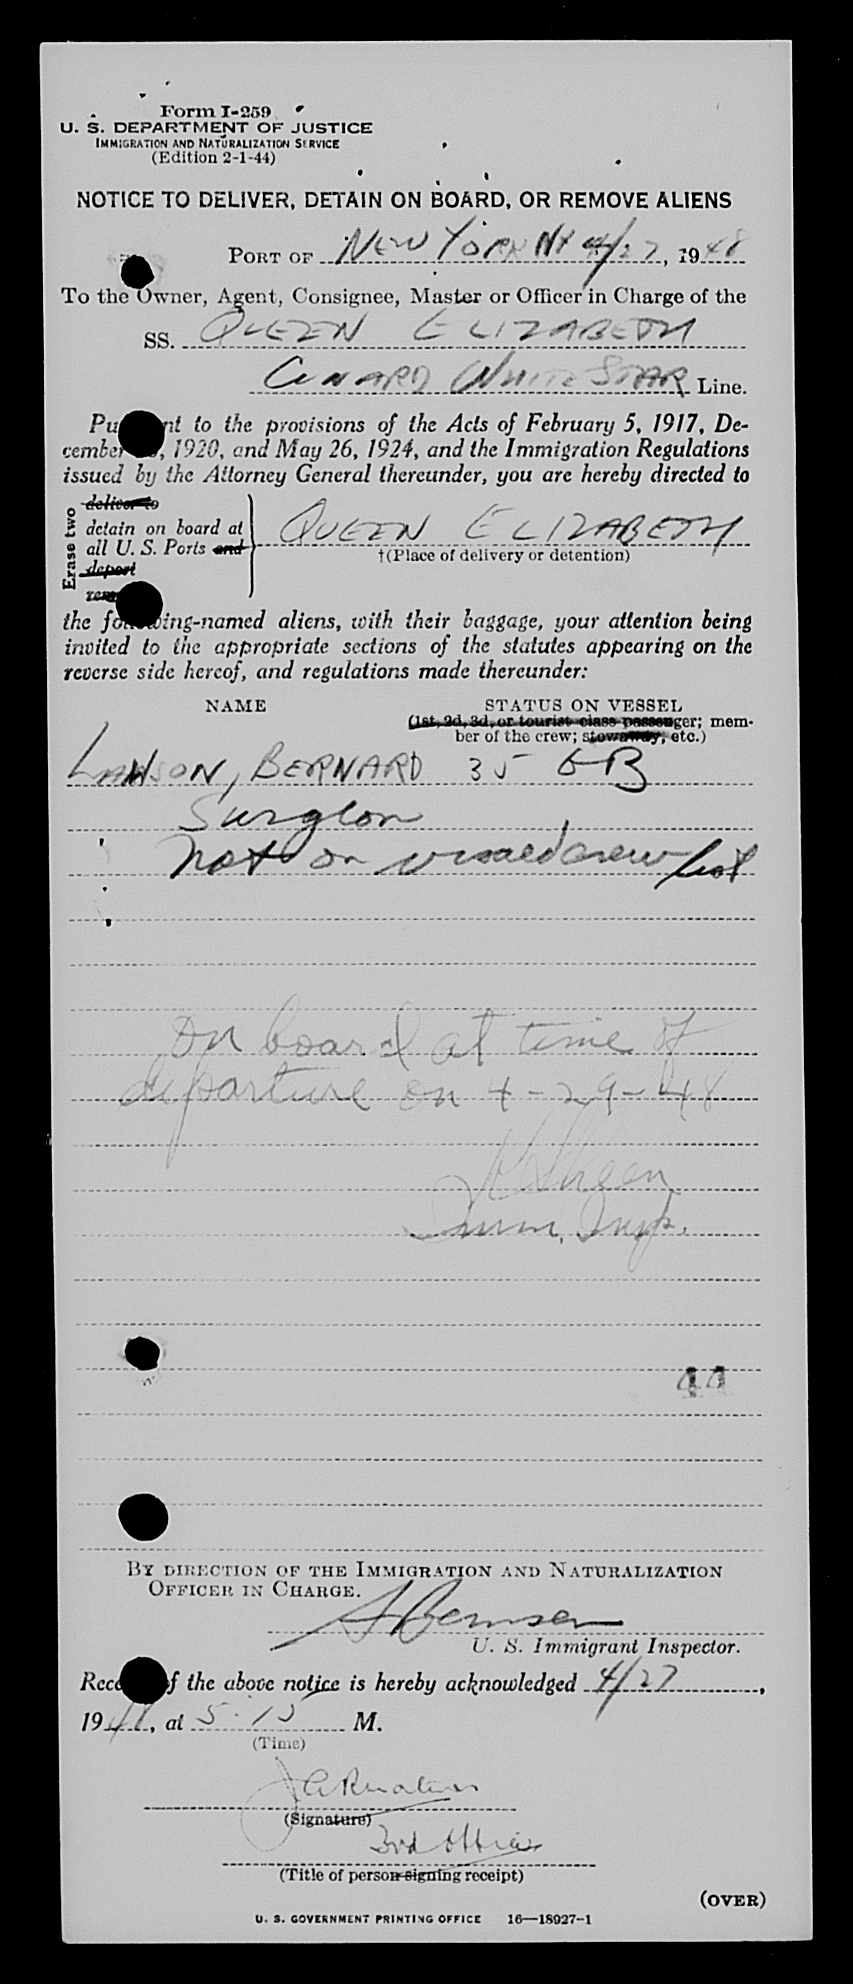 Form I-259
U. S. DEPARTMENT OF JUSTICE
IMMIGRATION AND NATURALIZATION SERVICE
(Edition 2-1-44)
NOTICE TO DELIVER, DETAIN ON BOARD, OR REMOVE ALIENS
PORT OF NEW YORK NY 4/27, 1948
To the Owner, Agent, Consignee, Master or Officer in Charge of the
SS. QUEEN ELIZABETH
CUNARD WHITE STAR Line.
Pu nt to the provisions of the Acts of February 5, 1917, De-
cember , 1920, and May 26, 1924, and the Immigration Regulations
issued by the Attorney General thereunder, you are hereby directed to
Erase two
deliver to
detain on board at
all U. S. Ports and
deport
rem
QUEEN ELIZABETH
†(Place of delivery or detention)
the following-named aliens, with their baggage, your attention being
invited to the appropriate sections of the statutes appearing on the
reverse side hereof, and regulations made thereunder:
NAME STATUS ON VESSEL
(1st, 2d, 3d, or tourist class passenger; mem-
ber of the crew; stowaway, etc.)
LAWSON, BERNARD 35 GB
Surgeon
Not on visaed crew list
On board at time of
departure on 4-29-48
Imm. Insp.
44
BY DIRECTION OF THE IMMIGRATION AND NATURALIZATION
OFFICER IN CHARGE.
U. S. Immigrant Inspector.
Rece f the above notice is hereby acknowledged 4/27,
1948, at 5:15 M.
(Time)
(Signature)
3rd Officer
(Title of person signing receipt)
(OVER)
U. S. GOVERNMENT PRINTING OFFICE 16—18927-1